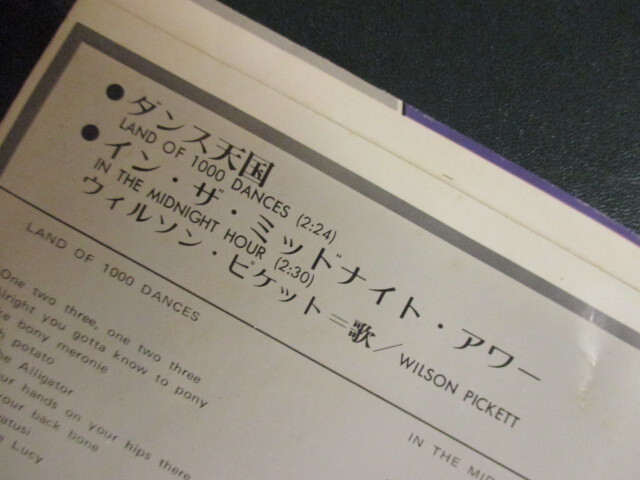 ●ダンス天国
LAND OF 1000 DANCES (2:24)
●イン・ザ・ミッドナイト・アワー
IN THE MIDNIGHT HOUR (2:30)
ウィルソン・ピケット=歌/WILSON PICKETT
LAND OF 1000 DANCES
One two three, one two three
you gotta know to pony
bony meronie
potato
Alligator
hands on your hips there
your back bone
Lucy
IN THE